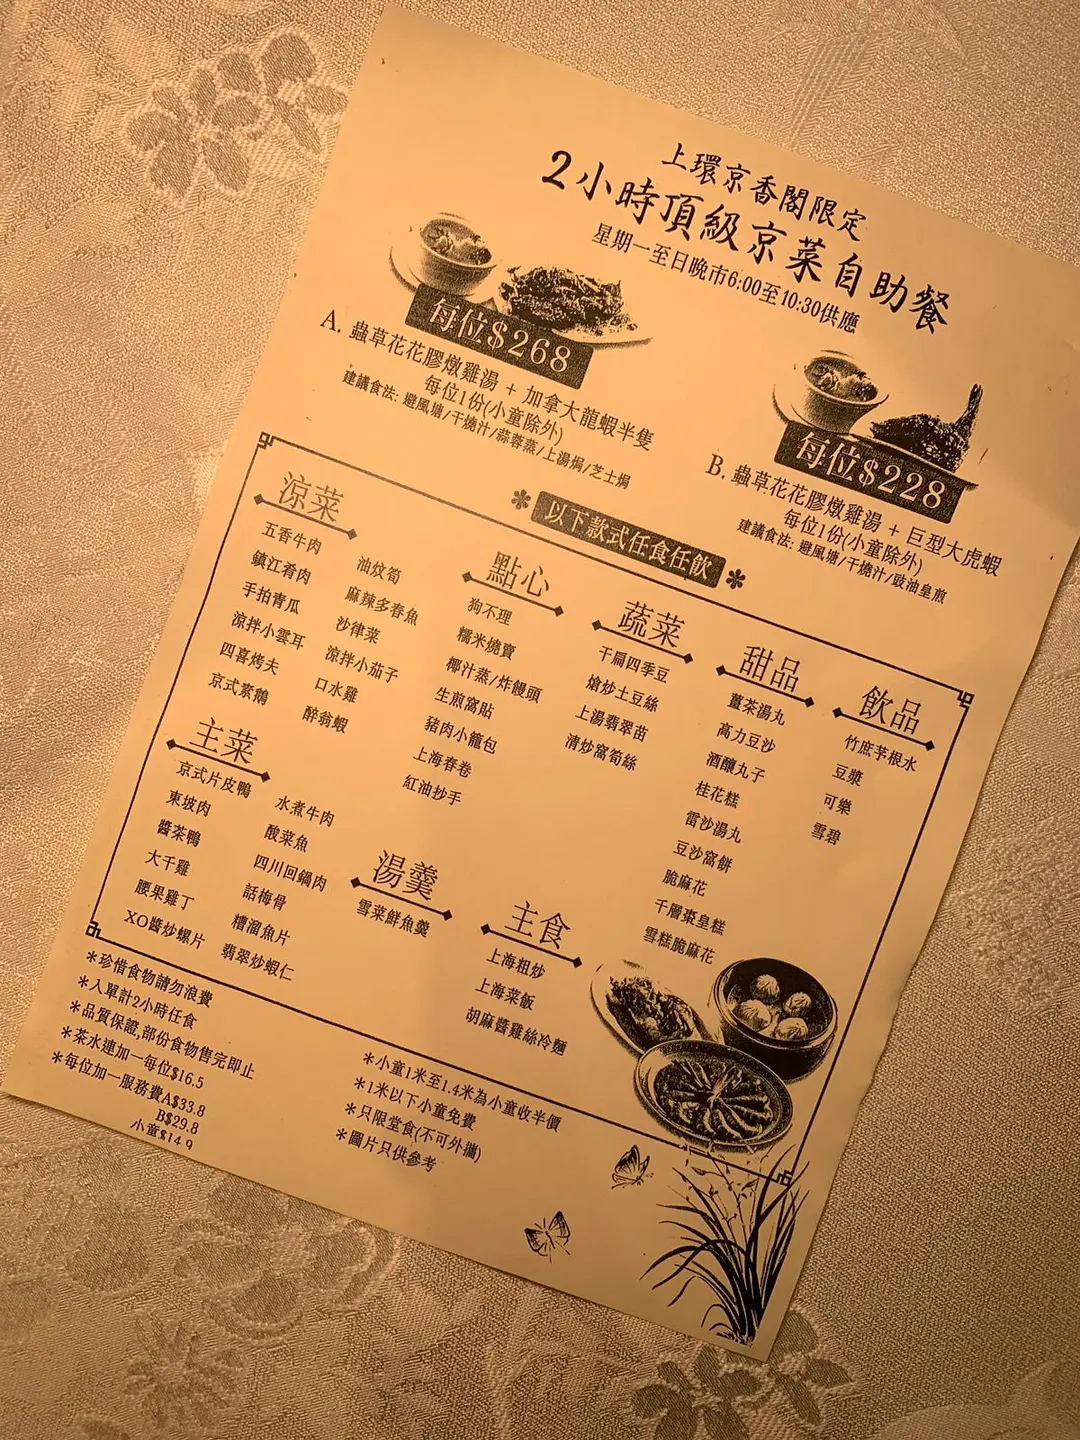 上環京香閣限定
2小時頂級京菜自助餐
星期一至日晚市6:00至10:30供應
每位$268
A. 蟲草花花膠燉雞湯 + 加拿大龍蝦半隻
每位1份(小童除外)
建議食法: 避風塘/干燒汁/蒜蓉蒸/上湯焗/芝士焗
每位$228
B. 蟲草花花膠燉雞湯 + 巨型大虎蝦
每位1份(小童除外)
建議食法: 避風塘/干燒汁/豉油皇煎
以下款式任食任飲
涼菜
五香牛肉
鎮江肴肉
手拍青瓜
涼拌小雲耳
四喜烤夫
京式素鵝
油炆筍
麻辣多春魚
沙律菜
涼拌小茄子
口水雞
醉翁蝦
主菜
京式片皮鴨
東坡肉
醬茶鴨
大千雞
腰果雞丁
XO醬炒螺片
水煮牛肉
酸菜魚
四川回鍋肉
話梅骨
糟溜魚片
翡翠炒蝦仁
點心
狗不理
糯米燒賣
椰汁蒸/炸饅頭
生煎窩貼
豬肉小籠包
上海春卷
紅油抄手
湯羹
雪菜鮮魚羹
蔬菜
干扁四季豆
熗炒土豆絲
上湯翡翠苗
清炒窩筍絲
主食
上海粗炒
上海菜飯
胡麻醬雞絲冷麵
甜品
薑茶湯丸
高力豆沙
酒釀丸子
桂花糕
雷沙湯丸
豆沙窩餅
脆麻花
千層棗皇糕
雪糕脆麻花
飲品
竹庶芧根水
豆漿
可樂
雪碧
*珍惜食物請勿浪費
*入單計2小時任食
*品質保證,部份食物售完即止
*茶水連加一每位$16.5
*每位加一服務費A$33.8
B$29.8
小童$14.9
*小童1米至1.4米為小童收半價
*1米以下小童免費
*只限堂食(不可外攜)
*圖片只供參考